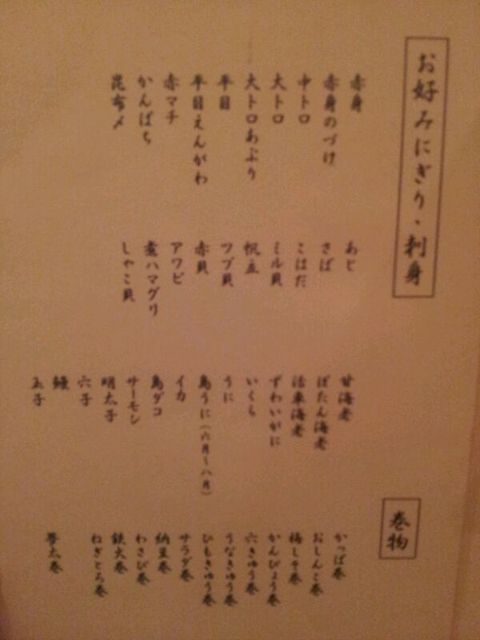 お好みにぎり・刺身
赤身
赤身のづけ
中トロ
大トロ
大トロあぶり
平目
平目えんがわ
赤マチ
かんぱち
昆布〆
あじ
さば
こはだ
ミル貝
帆立
ツブ貝
赤貝
アワビ
煮ハマグリ
しゃこ貝
甘海老
ぼたん海老
活車海老
ずわいがに
いくら
うに
島うに(六月～八月)
イカ
島ダコ
サーモン
明太子
穴子
鰻
玉子
巻物
かっぱ巻
おしんこ巻
梅しそ巻
かんぴょう巻
穴きゅう巻
うなきゅう巻
ひもきゅう巻
サラダ巻
納豆巻
わさび巻
鉄火巻
ねぎとろ巻
太巻